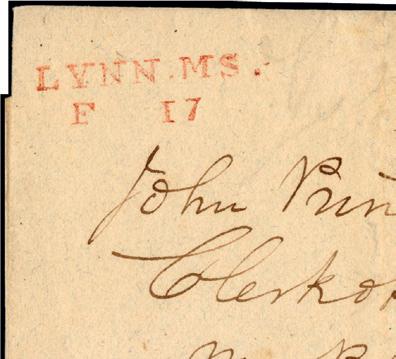 LYNN.MS.
F 17
John Prin
Clerk of